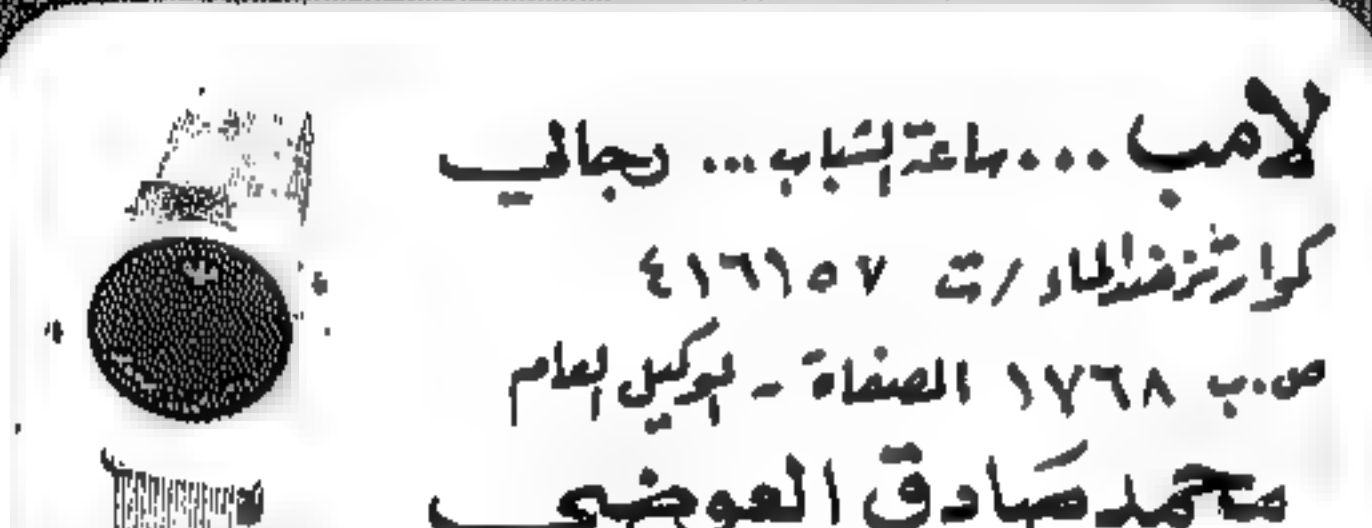 لامب ... ساعة الشباب ... رجالي
كوارتز ضد الماء / ت ٤١٦١٥٧
ص.ب ١٧٦٨ الصفاة - الوكيل العام
محمد صادق العوضي